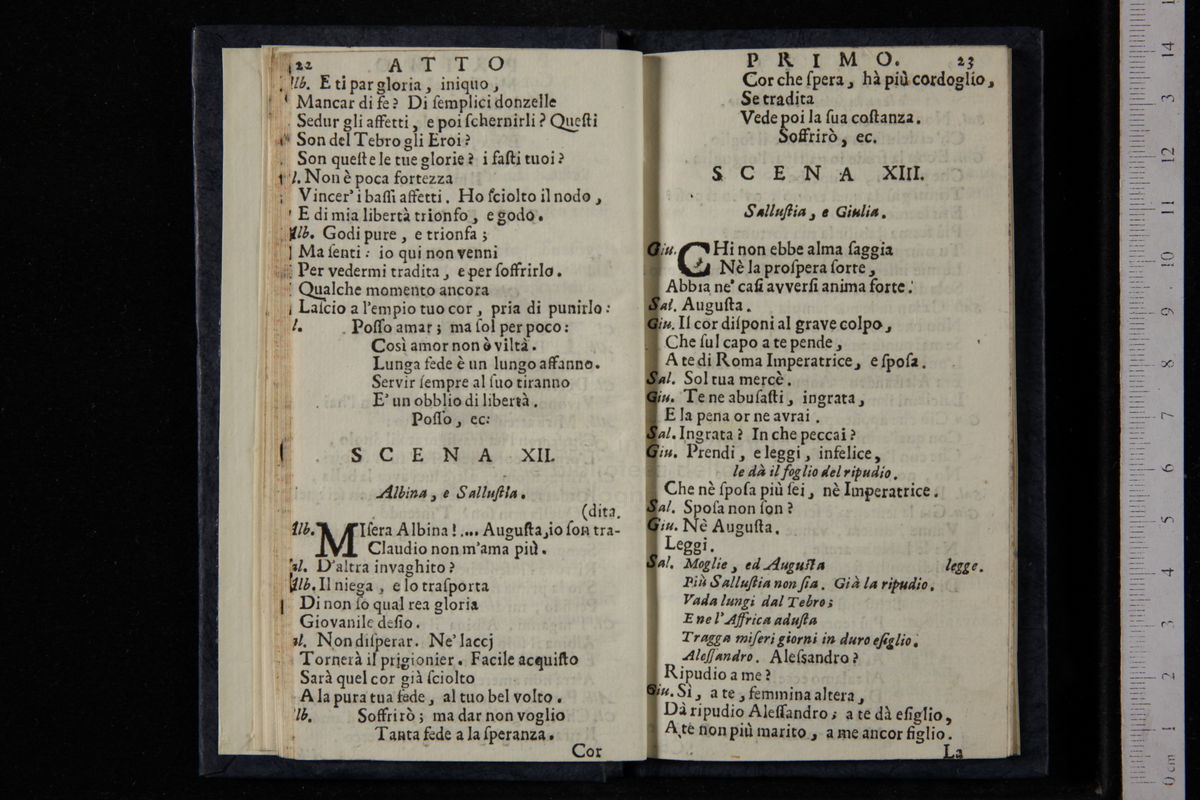 22 ATTO
lb. E ti par gloria, iniquo,
Mancar di fe? Di ſemplici donzelle
Sedur gli affetti, e poi ſchernirli? Queſti
Son del Tebro gli Eroi?
Son queſte le tue glorie? i faſti tuoi?
l. Non è poca fortezza
Vincer' i baſſi affetti. Ho ſciolto il nodo,
E di mia libertà trionfo, e godo.
Alb. Godi pure, e trionfa;
Ma ſenti: io qui non venni
Per vedermi tradita, e per ſoffrirlo.
Qualche momento ancora
Laſcio a l'empio tuo cor, pria di punirlo:
l. Poſſo amar; ma ſol per poco:
Così amor non è viltà.
Lunga fede è un lungo affanno.
Servir ſempre al ſuo tiranno
E' un obblio di libertà.
Poſſo, ec:
SCENA XII.
Albina, e Salluſtia.
(dita.
Alb. MIſera Albina!.... Auguſta, io ſon tra-
Claudio non m'ama più.
al. D'altra invaghito?
Alb. Il niega, e lo traſporta
Di non ſo qual rea gloria
Giovanile deſio.
al. Non diſperar. Ne' laccj
Tornerà il prigionier. Facile acquiſto
Sarà quel cor già ſciolto
A la pura tua fede, al tuo bel volto.
lb. Soffrirò; ma dar non voglio
Tanta fede a la ſperanza.
Cor
PRIMO. 23
Cor che ſpera, hà più cordoglio,
Se tradita
Vede poi la ſua coſtanza.
Soffrirò, ec.
SCENA XIII.
Salluſtia, e Giulia.
Giu. CHi non ebbe alma ſaggia
Nè la proſpera ſorte,
Abbia ne' caſi avverſi anima forte.
Sal. Auguſta.
Giu. Il cor diſponi al grave colpo,
Che ſul capo a te pende,
A te di Roma Imperatrice, e ſpoſa.
Sal. Sol tua mercè.
Giu. Te ne abuſaſti, ingrata,
E la pena or ne avrai.
Sal. Ingrata? In che peccai?
Giu. Prendi, e leggi, infelice,
le dà il foglio del ripudio.
Che nè ſpoſa più ſei, nè Imperatrice.
Sal. Spoſa non ſon?
Giu. Nè Auguſta.
Leggi.
Sal. Moglie, ed Auguſta legge.
Più Salluſtia non ſia. Già la ripudio.
Vada lungi dal Tebro;
E ne l'Affrica aduſta
Tragga miſeri giorni in duro eſiglio.
Aleſſandro. Aleſsandro?
Ripudio a me?
Giu. Sì, a te, femmina altera,
Dà ripudio Aleſſandro; a te dà eſiglio,
A te non più marito, a me ancor figlio.
La